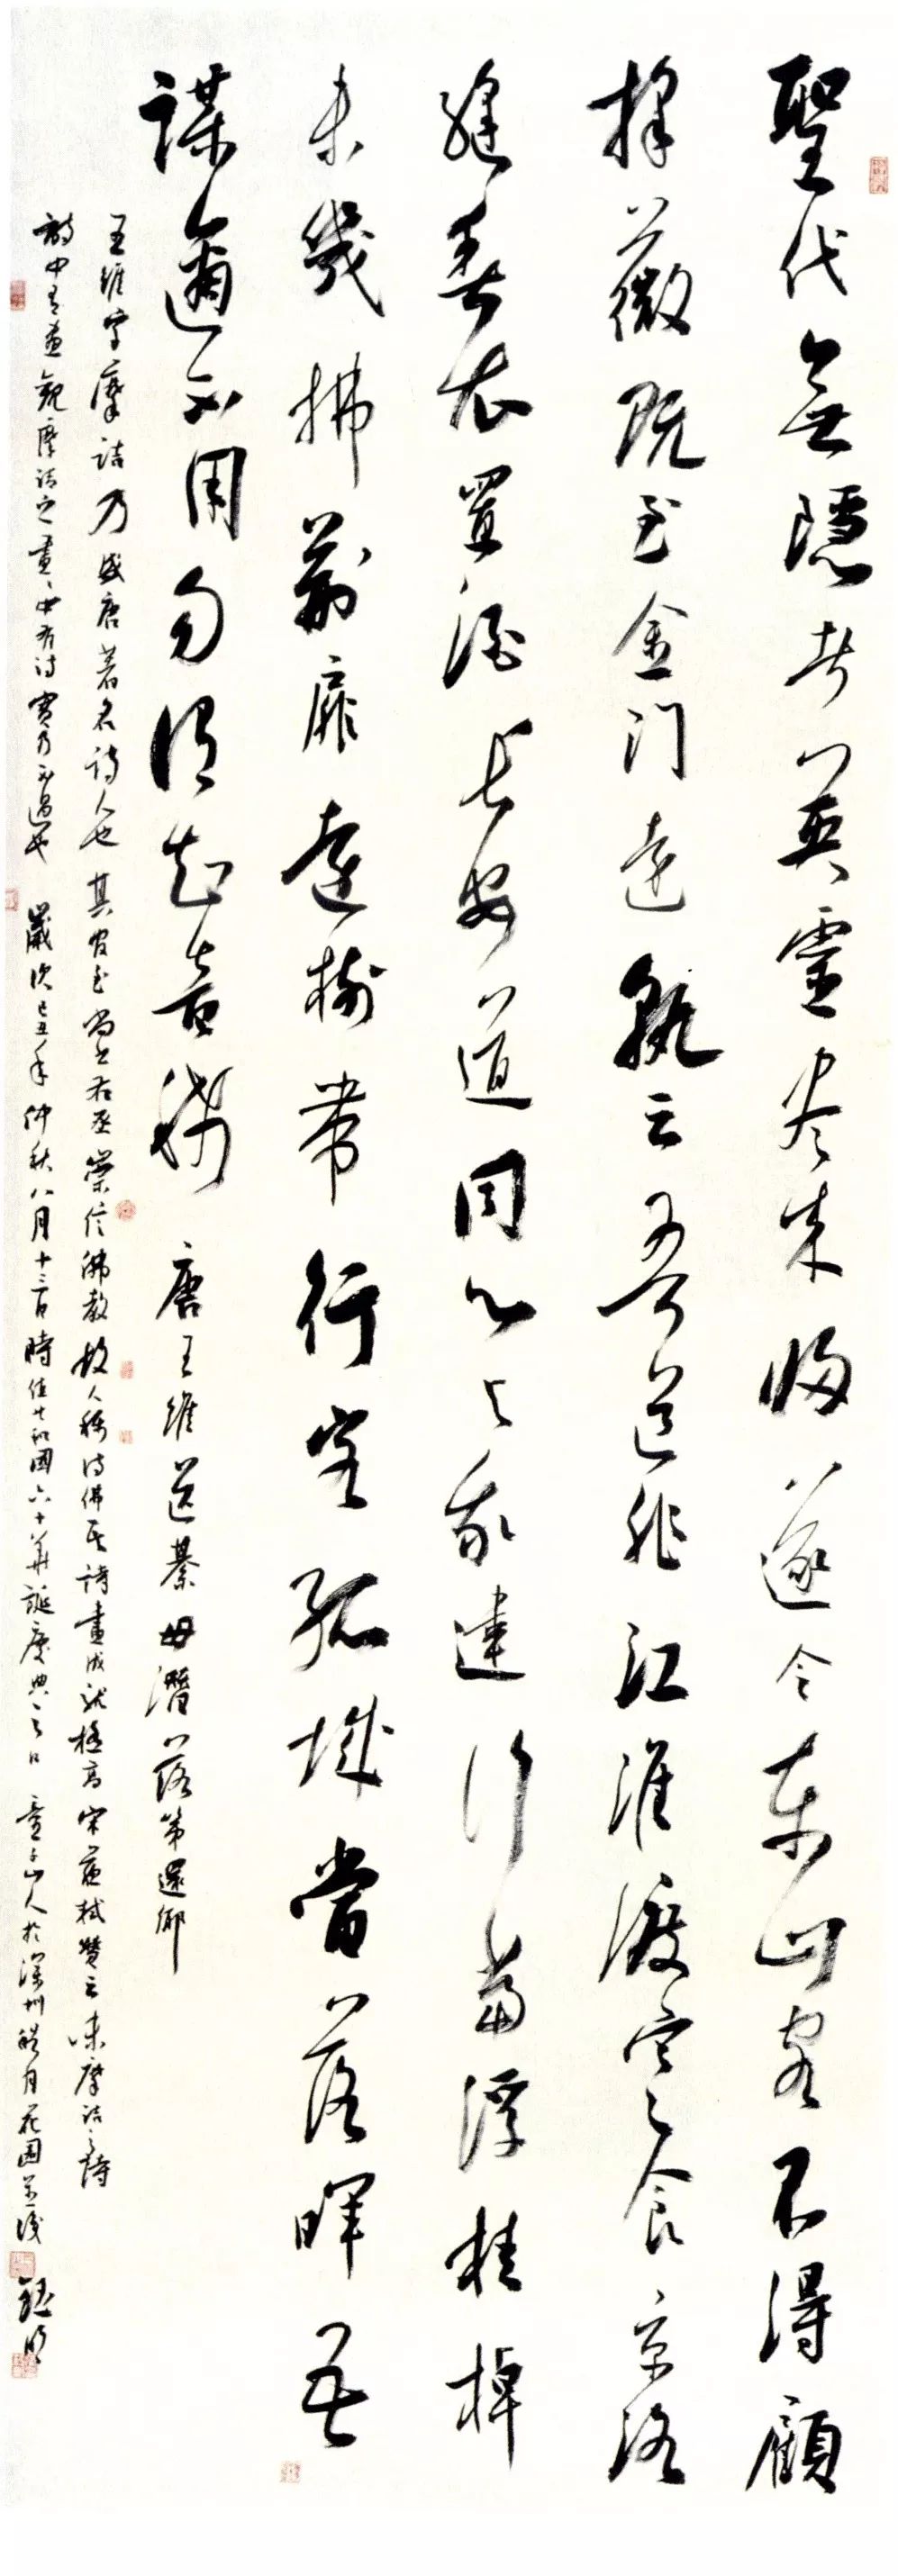 聖代無隱者英靈盡來歸遂令東山客不得顧
採薇既至金門遠孰云吾道非江淮渡寒食京洛
縫春衣置酒長安道同心與我違行當浮桂棹
未幾拂荊扉遠樹帶行客孤城當落暉吾
謀適不用勿謂知音稀 唐王維送綦毋潛落第還鄉
王維字摩詰乃盛唐著名詩人也其官至尚書右丞崇信佛教故人稱詩佛其詩畫成就極高宋蘇軾贊云味摩詰之詩
詩中有畫觀摩詰之畫畫中有詩實乃不過也 歲次己丑年仲秋八月十三日時值共和國六十華誕慶典之日 山人於深圳皓月花園